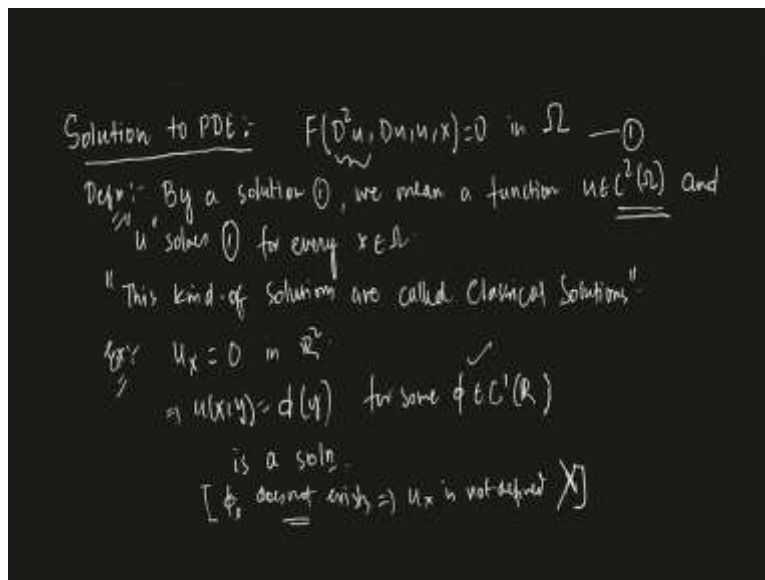 Solution to PDE:- F(D²u, Du, u, x)=0 in Ω —①
Defn:- By a solution ①, we mean a function u∈C²(Ω) and
"u" solves ① for every x∈Ω.
"This kind of Solutions are called Classical Solutions".
Ex:- u_x = 0 in ℝ²
⇒ u(x,y) = ϕ(y) for some ϕ ∈ C¹(ℝ) ✓
is a soln.
[ does not exists ⇒ u_x is not defined X]